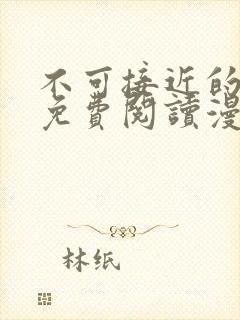 不可接近的
免費閱讀漫
林纸